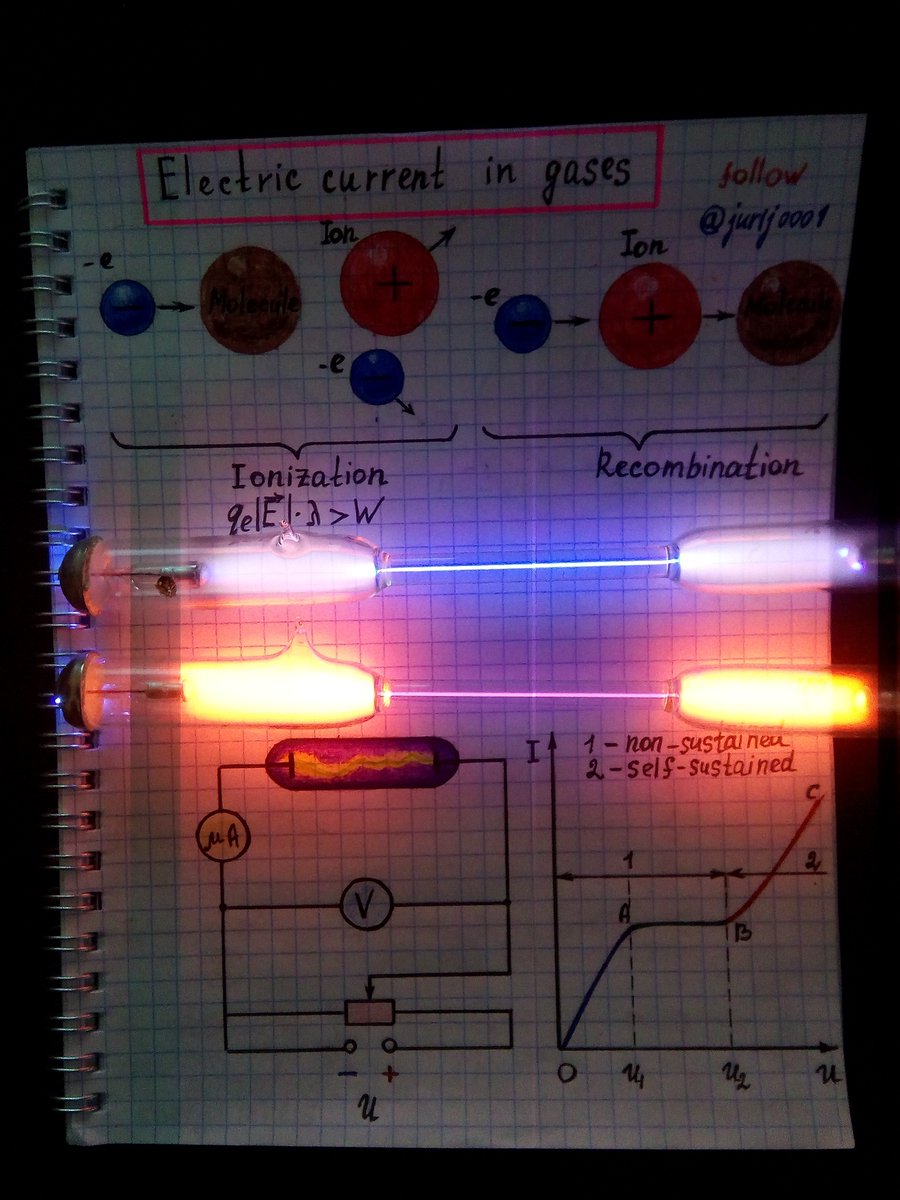 Electric current in gases
follow
@jurij0001
-e
Molecule
Ion
+
-e
-e
Ion
+
Molecule
Ionization
qₑ|E⃗|·λ>W
Recombination
μA
V
− +
u
I
1 - non-sustained
2 - self-sustained
C
1
2
A
B
O
u₁
u₂
u